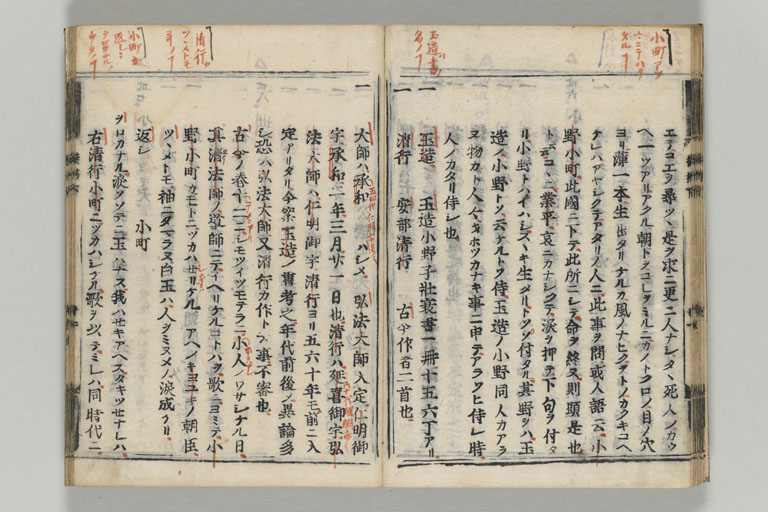 エテコエヲ尋ツヽ是ヲ求ニ更ニ人ナシタヽ死人ノカウ
ヘ一ツアリアクル朝トクコレヲミルニカノトクロノ目ノ穴
ヨリ薄一本生出タリケルカ風ノナヒクヲトノカクキコヘ
ケレハアヤシクテアタリノ人ニ此事ヲ問或人語云小
野小町此國ニ下テ此所ニシテ命ヲ終ヌ則頭是也
ト云コヽニ業平哀ニカナシクテ涙ヲ押テ下句ヲ付タ
リ小野トハイハシスヽキ生タリトソ付タル其野ヲハ玉
造ノ小野トソ云ケルトソ侍玉造ノ小野同人カアラ
ヌ物カト人々ヲホツカナキ事ニ申テアラソヒ侍シ時
人ノカタリ侍シ也
一 玉造 玉造小野子壯衰書一冊十五六丁アリ
一 清行 安部清行 古今作者二首也
一 大師ハ承和ノハシメ 弘法大師入定仁明御
宇承和二年三月廿一日也清行ハ延喜御宇弘
法大師ハ仁明御宇清行ヨリ五六十年モ前ニ入
定アリタリ今案玉造ノ書者之年代前後ノ異論多
シ恐ハ弘法大師又清行カ作ト云事不審也
古今ノ卷十二ニシモツイツモテラニ小人ノワサシケル日
真濟法師ノ導師ニテイヘリケルコトハヲ歌ニヨミテ小
野小町カモトニツカハセリケル アヘノキヨユキノ朝臣
ツヽメトモ袖ニタマラヌ白玉ハ人ヲミヌメノ涙成ケリ
返シ 小町
ヲロカナル涙ソソテニ玉ハナス我ハせキアヘスタキツせナレハ
右清行小町ニツカハシケル歌ヲ以テミレハ同時代ニ